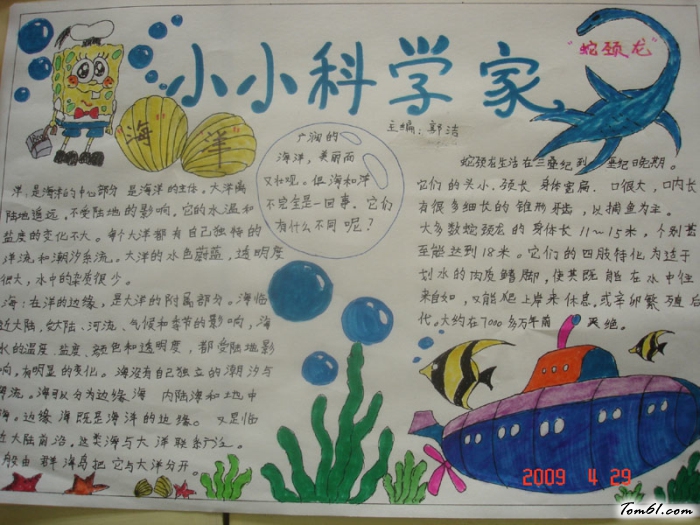 小小科学家
"蛇颈龙"
主编：郭洁
"海 洋"
广阔的
海洋，美丽而
又壮观。但海和洋
不完全是一回事，它们
有什么不同呢？
洋，是海洋的中心部分 是海洋的主体。大洋离
陆地遥远，不受陆地的影响，它的水温和
盐度的变化不大。每个大洋都有自己独特的
洋流和潮汐系流。大洋的水色蔚蓝，透明度
很大，水中的杂质很少。
海：在洋的边缘，是大洋的附属部分。海临
近大陆，受大陆、河流、气候和季节的影响，海
水的温度、盐度、颜色和透明度，都受陆地影
响，有明显的变化。海没有自己独立的潮汐与
海流。海可以分为边缘海 内陆海和地中
海。边缘海既是海洋的边缘。又是临
近大陆前沿。这类海与大洋联系广泛。
般由群海岛把它与大洋分开。
蛇颈龙生活在三叠纪到 垩纪晚期。
它们的头小、颈长 身体宽扁、口很大，口内长
有很多细长的锥形牙齿，以捕鱼为主。
大多数蛇颈龙的身体长11～15米，个别甚
至能达到18米。它们的四肢特化为适于
划水的肉质鳍脚，使其既能在水中往
来自如，又能爬上岸来休息，或产卵繁殖后
代。大约在7000多万年前 灭绝。
2009 4 29
Tom61.com